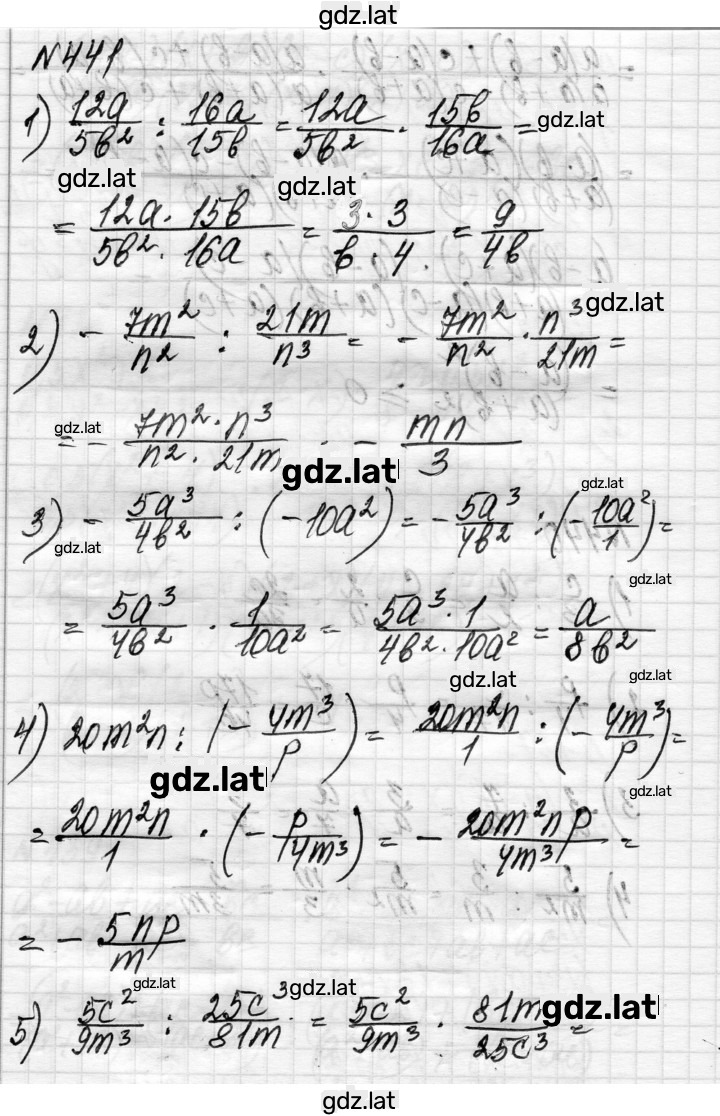 gdz.lat
N441
1) 12a/5b² : 16a/15b = 12a/5b² · 15b/16a = gdz.lat
gdz.lat gdz.lat
= 12a · 15b/5b² · 16a = 3 · 3/b · 4 = 9/4b
gdz.lat
2) - 7m²/n² : 21m/n³ = - 7m²/n² · n³/21m =
gdz.lat
= - 7m² · n³/n² · 21m - mn/3
gdz.lat gdz.lat
3) - 5a³/4b² : (-10a²) = - 5a³/4b² : (- 10a²/1) =
gdz.lat gdz.lat
= 5a³/4b² · 1/10a² = 5a³ · 1/4b² · 10a² = a/8b²
gdz.lat gdz.lat
4) 20m²n : (- 4m³/p) = 20m²n/1 : (- 4m³/p) =
gdz.lat gdz.lat
= 20m²n/1 · (- p/4m³) = - 20m²np/4m³ =
= - 5np/m
gdz.lat gdz.lat
5) 5c²/9m³ : 25c³/81m = 5c²/9m³ · 81m/25c³ =
gdz.lat
gdz.lat